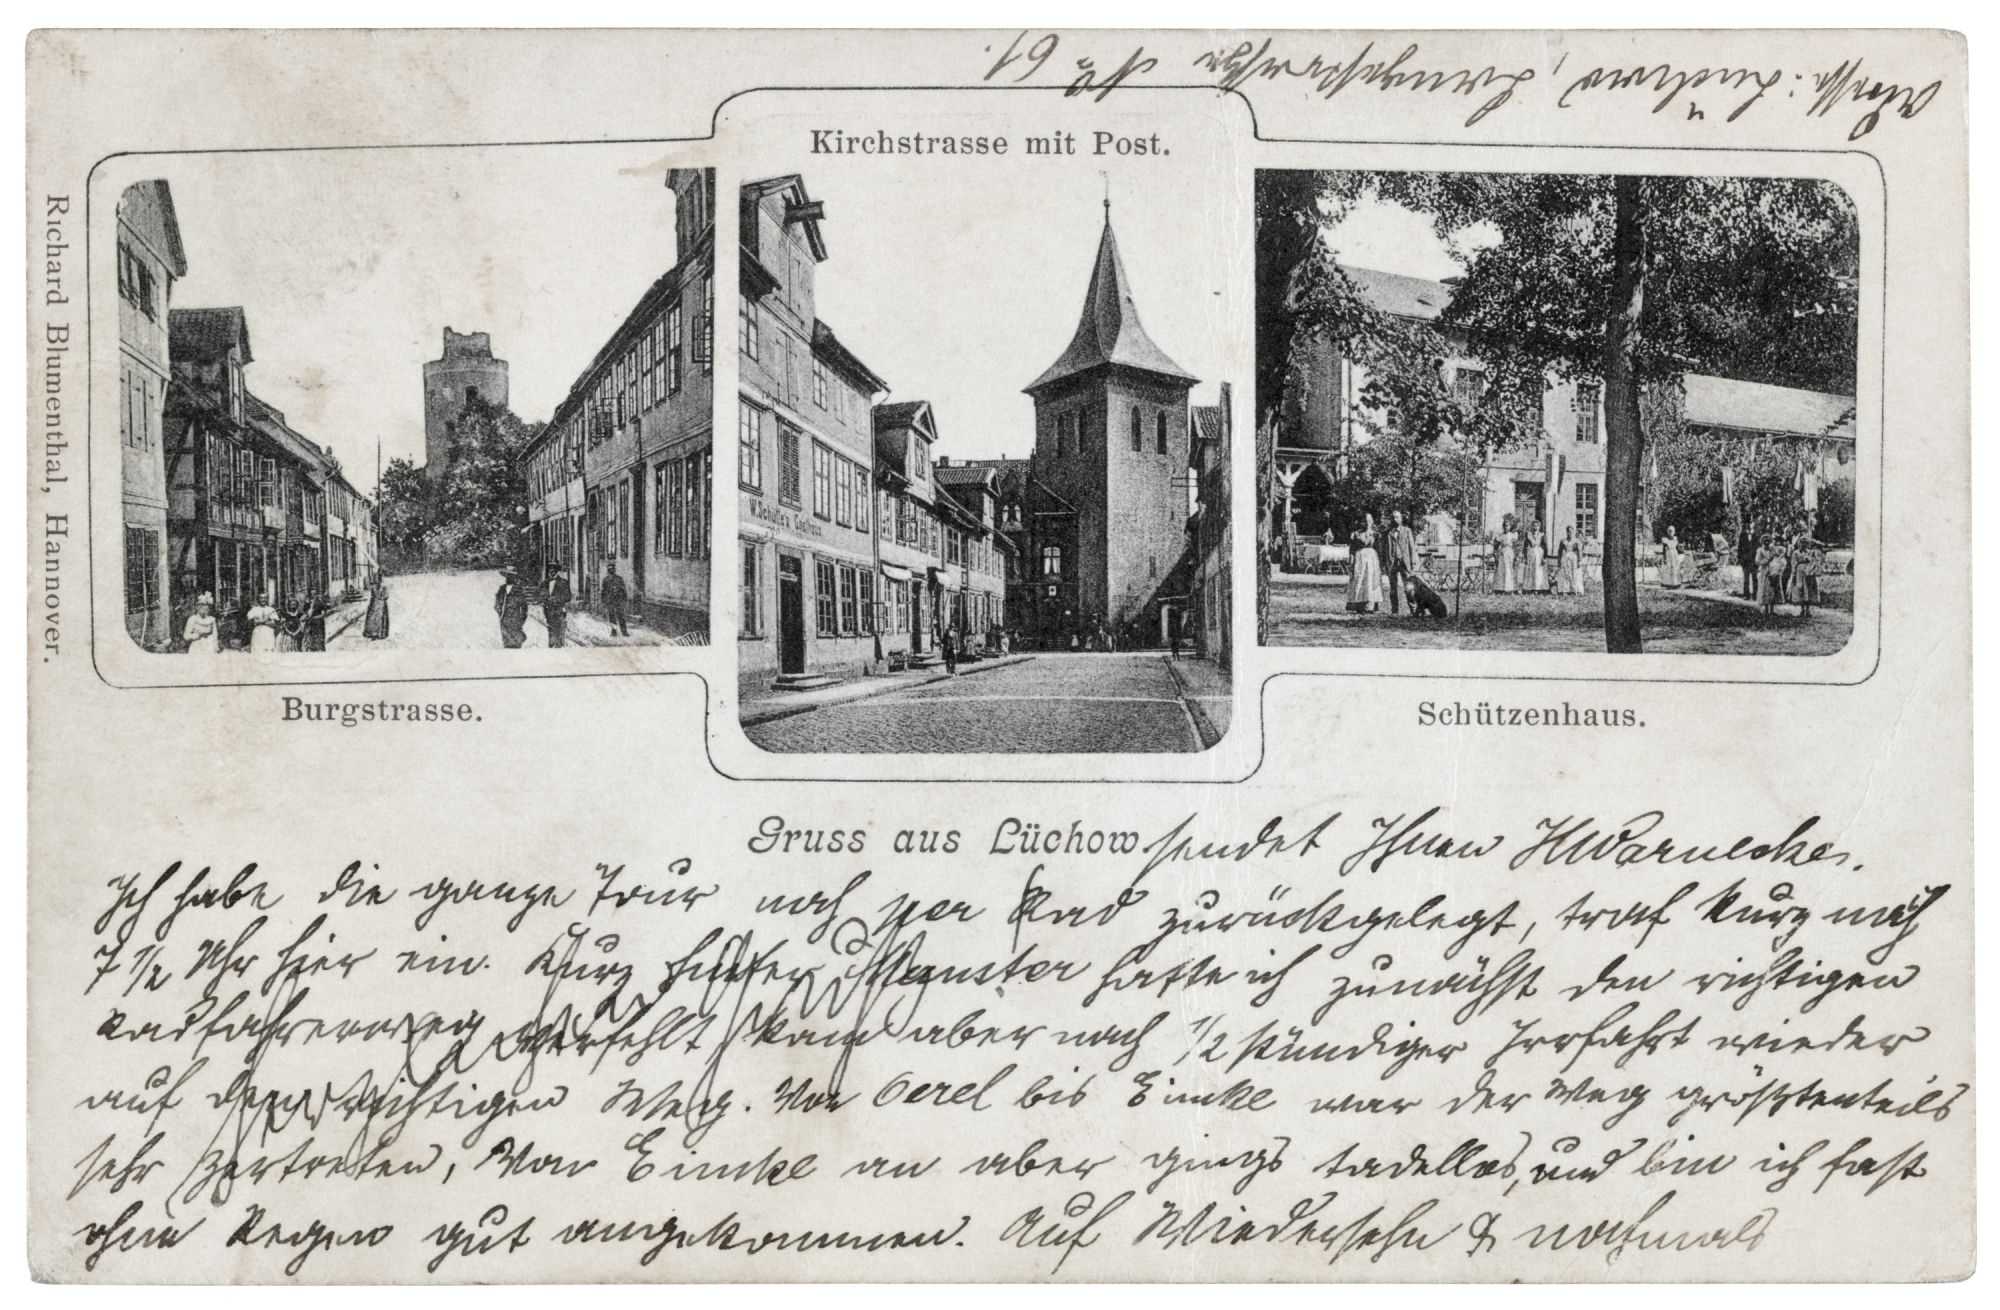 Adresse: Lüchow, Langestrasse No 61.
Kirchstrasse mit Post.
W. Schulz'n Gasthaus
Burgstrasse.
Schützenhaus.
Richard Blumenthal, Hannover.
Gruss aus Lüchow. sendet Ihnen HWarnecke.
Ich habe die ganze Tour noch per Rad zurückgelegt, traf kurz nach
7 1/2 Uhr hier ein. Kurz hinter Munster hatte ich zunächst den richtigen
Radfahrerweg verfehlt kam aber nach 1/2 stündiger Irrfahrt wieder
auf den richtigen Weg. Von Oerel bis Eimke war der Weg größtenteils
sehr zertreten, Von Eimke an aber gings tadellos, und bin ich fast
ohne Regen gut angekommen. Auf Wiedersehn & nochmals